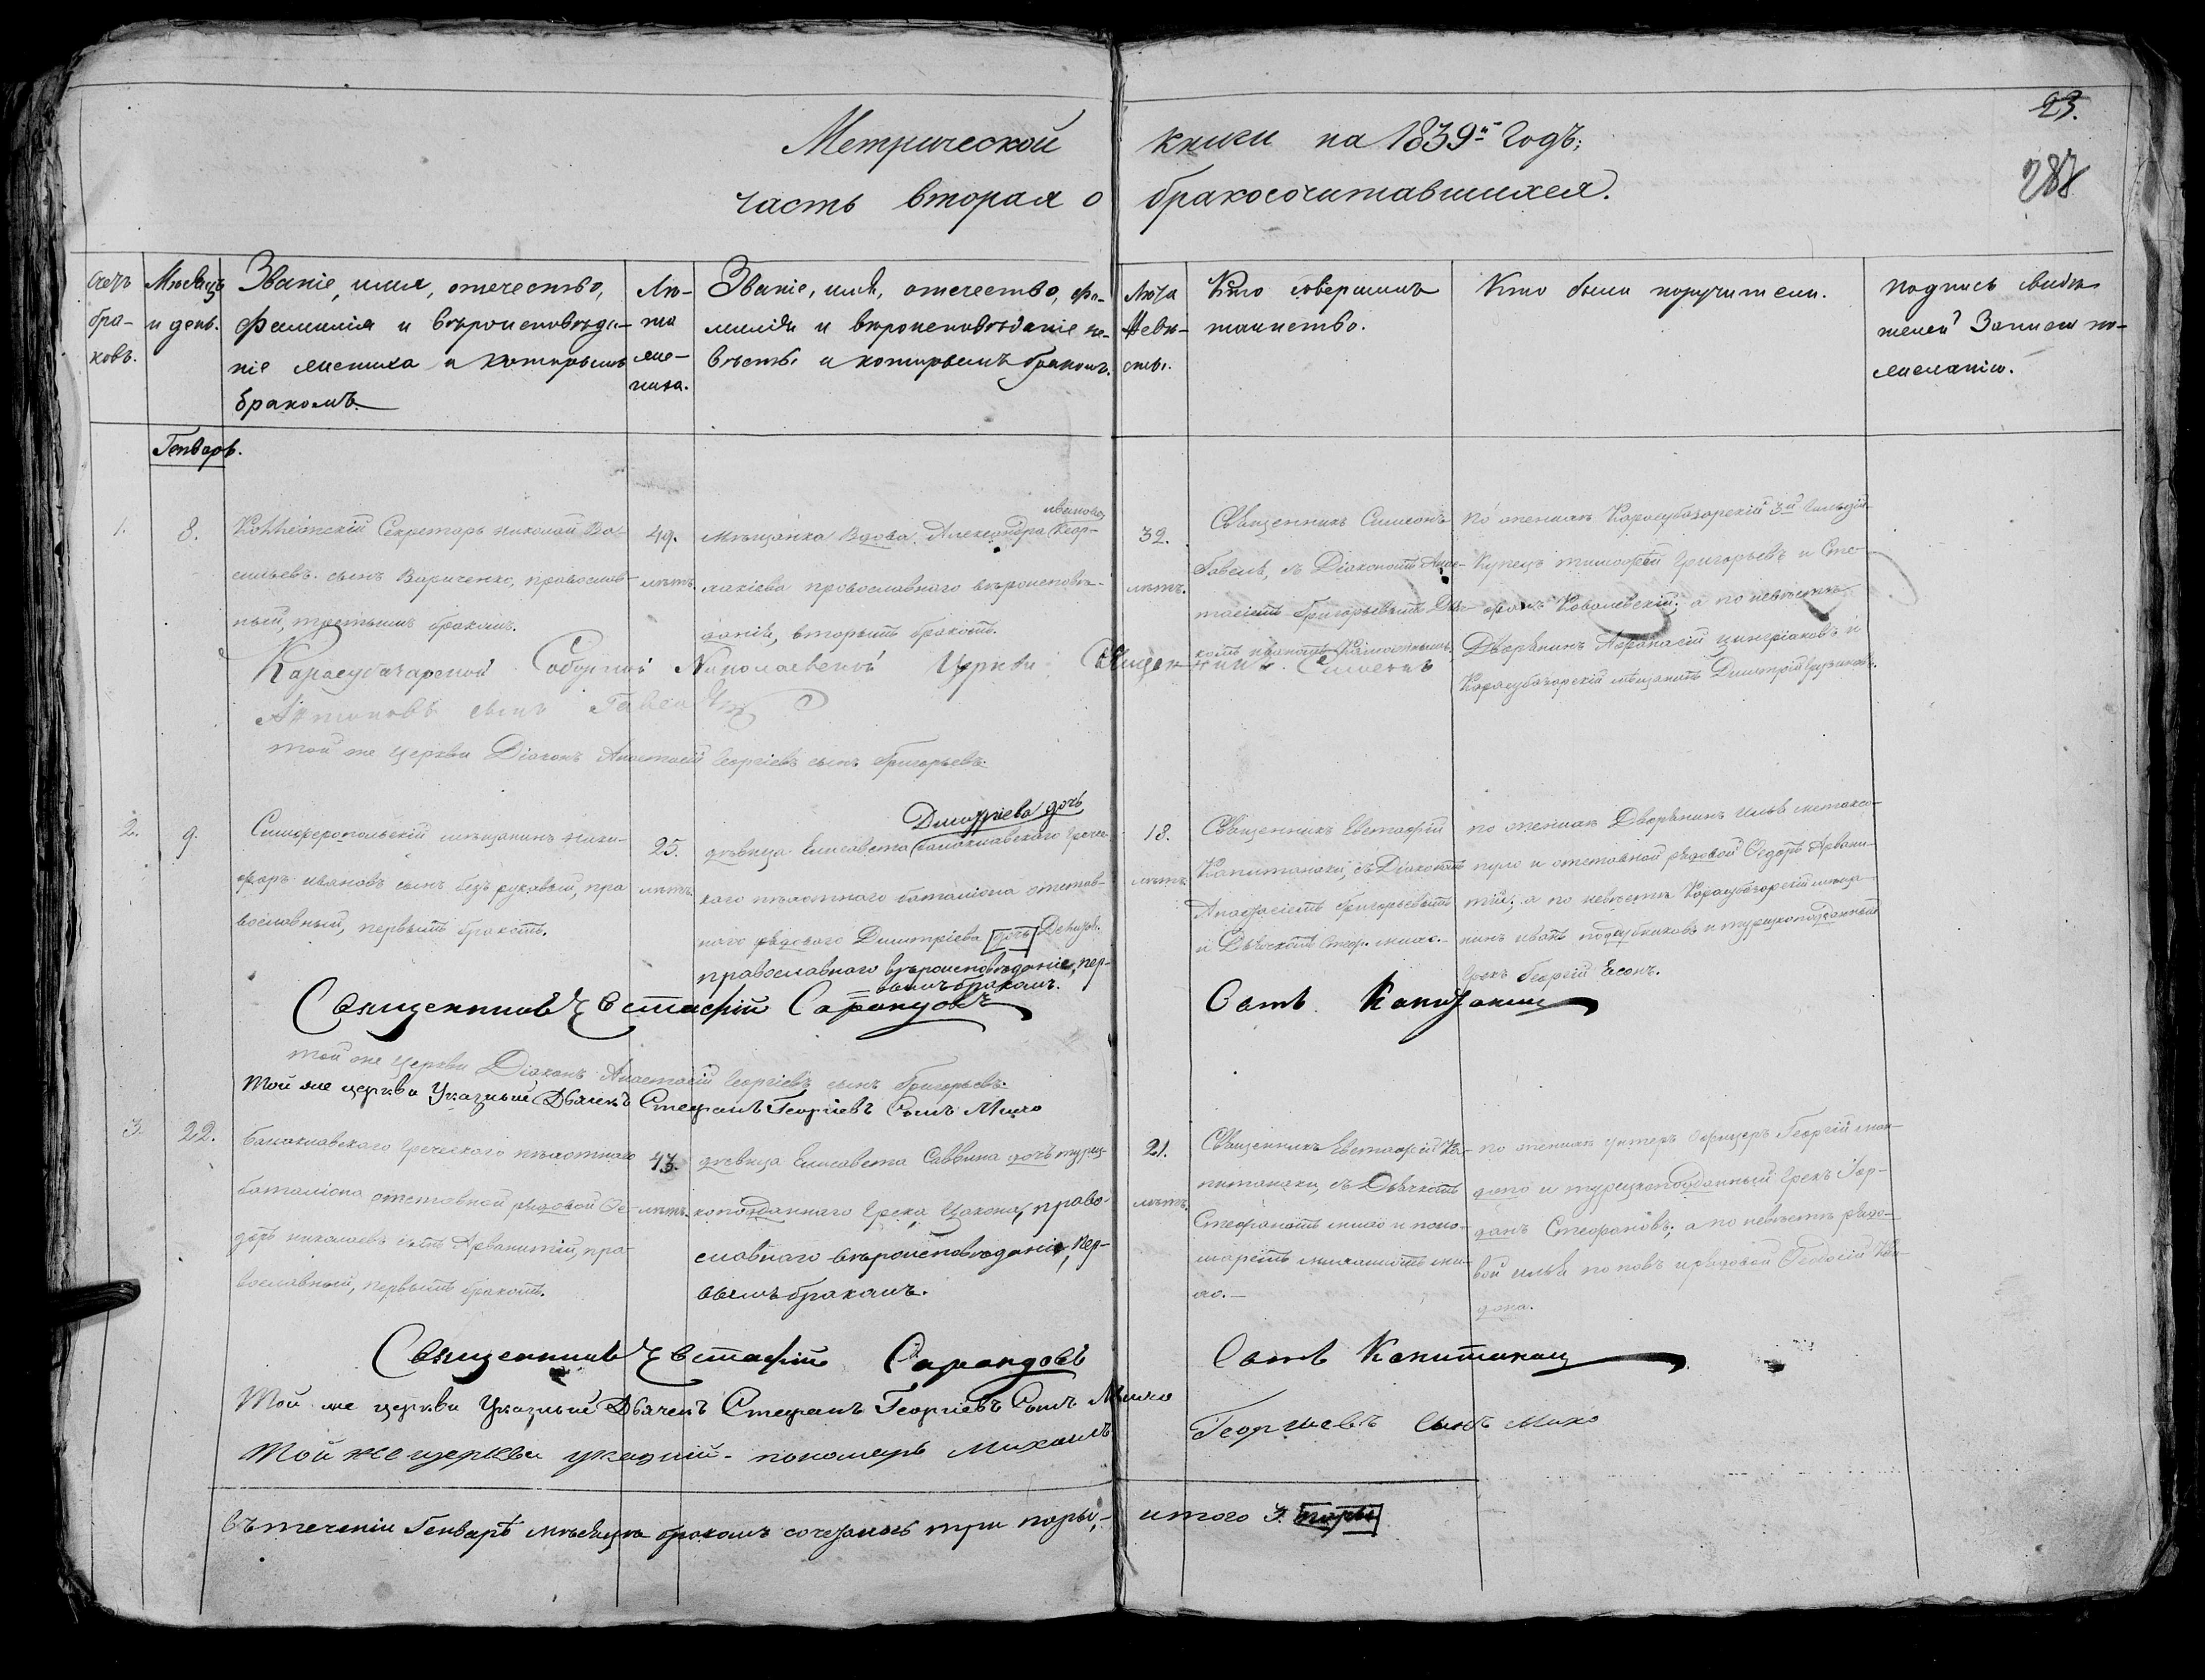 23.
288
Метрической книги на 1839й Годъ;
часть вторая о бракосочитавшихся.
Счетъ браковъ.
Мѣсяцъ и день.
Званіе, имя, отечество,
Фамилія и вѣроисповѣда-
ніе жениха и которымъ
бракомъ.
Лѣ-
та
же-
ниха.
Званіе, имя, отечество, фа-
милія и вѣроисповѣданіе не-
вѣсты и которымъ бракомъ.
Лѣта
Невѣ-
сты.
Кто совершилъ
таинство.
Кто были поручители.
подпись свидѣ-
телей Записи по
желанію.
Генварь.
1.
8.
Секретарь Николай Ва-
сильевъ сынъ Вариченко, православ-
ный, третьимъ бракомъ.
49.
лѣтъ.
иванова
Мѣщанка Вдова Александра
православнаго вѣроисповѣ-
данія, вторымъ бракомъ.
32.
лѣтъ.
Священникъ Симеонъ
Гавель, съ Діакономъ Анас-
тасіемъ Григорьевымъ
По женихѣ Карасубазарскій 3й Гильдіи
Купецъ тимофей Григорьевъ и Сте-
фанъ Ковалевскій; а по невѣстѣ
Дворянинъ Афанасій и
Карасубазарскій мѣщанинъ Димитрій
Карасубазарской Соборной Николаевской Церкви Священникъ Симеонъ
Антоновъ сынъ Гавель
той же церкви Діаконъ Анастасій Георгіевъ сынъ Григорьевъ.
2.
9.
Симферопольскій мѣщанинъ Ники-
форъ ивановъ сынъ безъ рукавый, пра
вославный, первымъ бракомъ.
25.
лѣтъ.
Димитріева дочь
дѣвица Елисавета балаклавскаго Грече-
каго пѣхотнаго баталіона отстав-
наго рядоваго Димитріева дочь
православнаго вѣроисповѣданіе, пер-
вымъ бракомъ.
18.
лѣтъ
Священникъ Евстафій
Капитанаки, съ Діакономъ
Анастасіемъ Григорьевымъ
и Дьячкомъ Стеф. михо.
по женихѣ Дворянинъ Илья метаксо-
пуло и отставной рядовой Ѳедоръ Арвани-
тій; а по невѣстѣ Карасубазарскій мѣща-
нинъ иванъ и турецкоподданный
Грекъ Георгій
Священникъ Евстафій Сарандовъ Сынъ Капитанаки
той же церкви Діаконъ Анастасій Георгіевъ сынъ Григорьевъ.
Той же церкви Указный Дьячекъ Стефанъ Георгіевъ Сынъ Михо
3.
22.
балаклавскаго Греческаго пѣхотнаго
баталіона отставной рядовой Ѳе-
доръ николаевъ сынъ Арванитій, пра-
вославный, первымъ бракомъ.
43.
лѣтъ.
дѣвица Елисавета Саввина дочь турец-
коподданнаго Грека Цакона, право-
славнаго вѣроисповѣданіе, пер-
вымъ бракомъ.
21.
лѣтъ.
Священникъ Евстафій Ка-
питанаки, съ Дьячкомъ
Стефаномъ михо и поно-
маремъ михаиломъ ми-
хо.
по женихѣ унтеръ Офицеръ Георгій ман-
дато и турецкоподданный Грекъ Іор-
данъ Стефановъ; а по невѣстѣ рядо-
вой илья поповъ и рядовой Ѳеодосій
дона.
Священникъ Евстафій Сарандовъ Сынъ Капитанаки
Той же церкви Указный Дьячекъ Стефанъ Георгіевъ Сынъ Михо
Той же церкви указний пономарь Михаилъ Георгиевъ сынъ Михо
Въ теченіи Генварѣ мѣсяцѣ бракомъ сочетались три пары; итого 3. пары